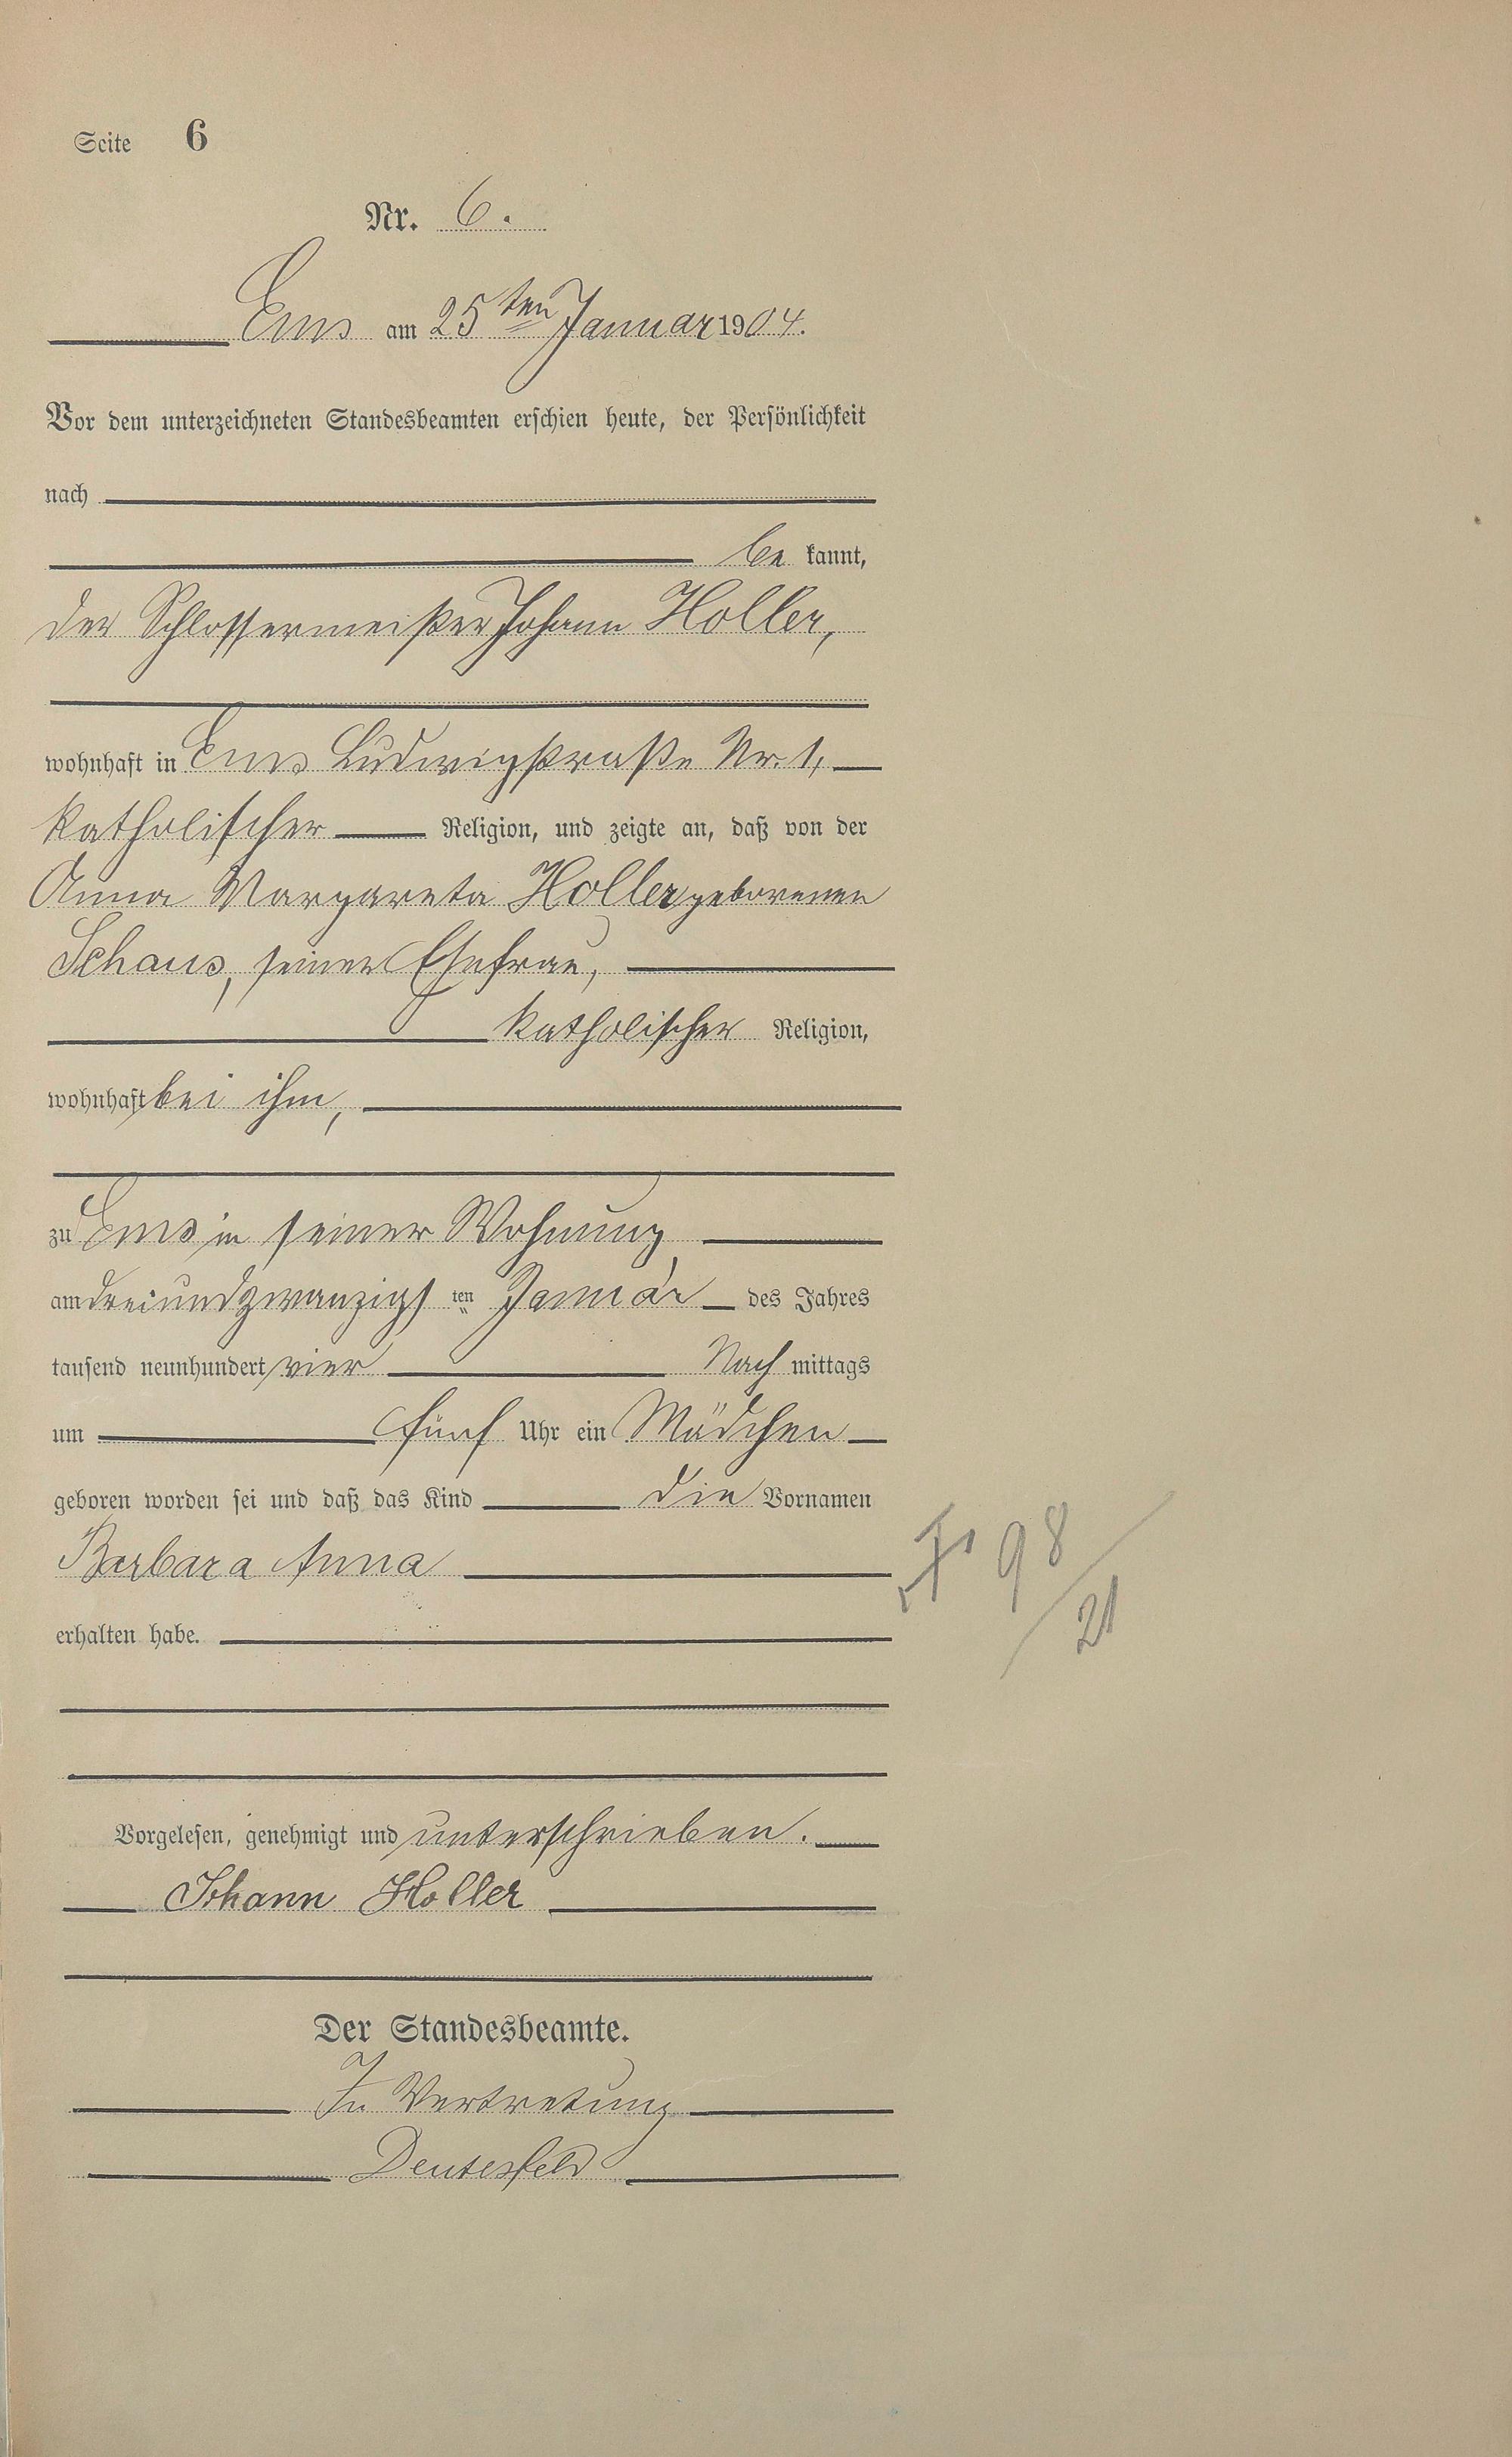 Seite 6
Nr. 6.
Ems am 25ten Januar 1904.
Vor dem unterzeichneten Standesbeamten erschien heute, der Persönlichkeit
nach
be kannt,
der Schlossermeister Johann Holler,
wohnhaft in Ems Ludwigstraße Nr. 1,
katholischer Religion, und zeigte an, daß von der
Anna Margareta Holler geborenen
Schaus, seiner Ehefrau,
katholischer Religion,
wohnhaft bei ihm,
zu Ems in seiner Wohnung
am dreiundzwanzigs ten Januar des Jahres
tausend neunhundert vier Nach mittags
um fünf Uhr ein Mädchen
geboren worden sei und daß das Kind die Vornamen
Barbara Anna
98
21
erhalten habe.
Vorgelesen, genehmigt und unterschrieben.
Johann Holler
Der Standesbeamte.
In Vertretung